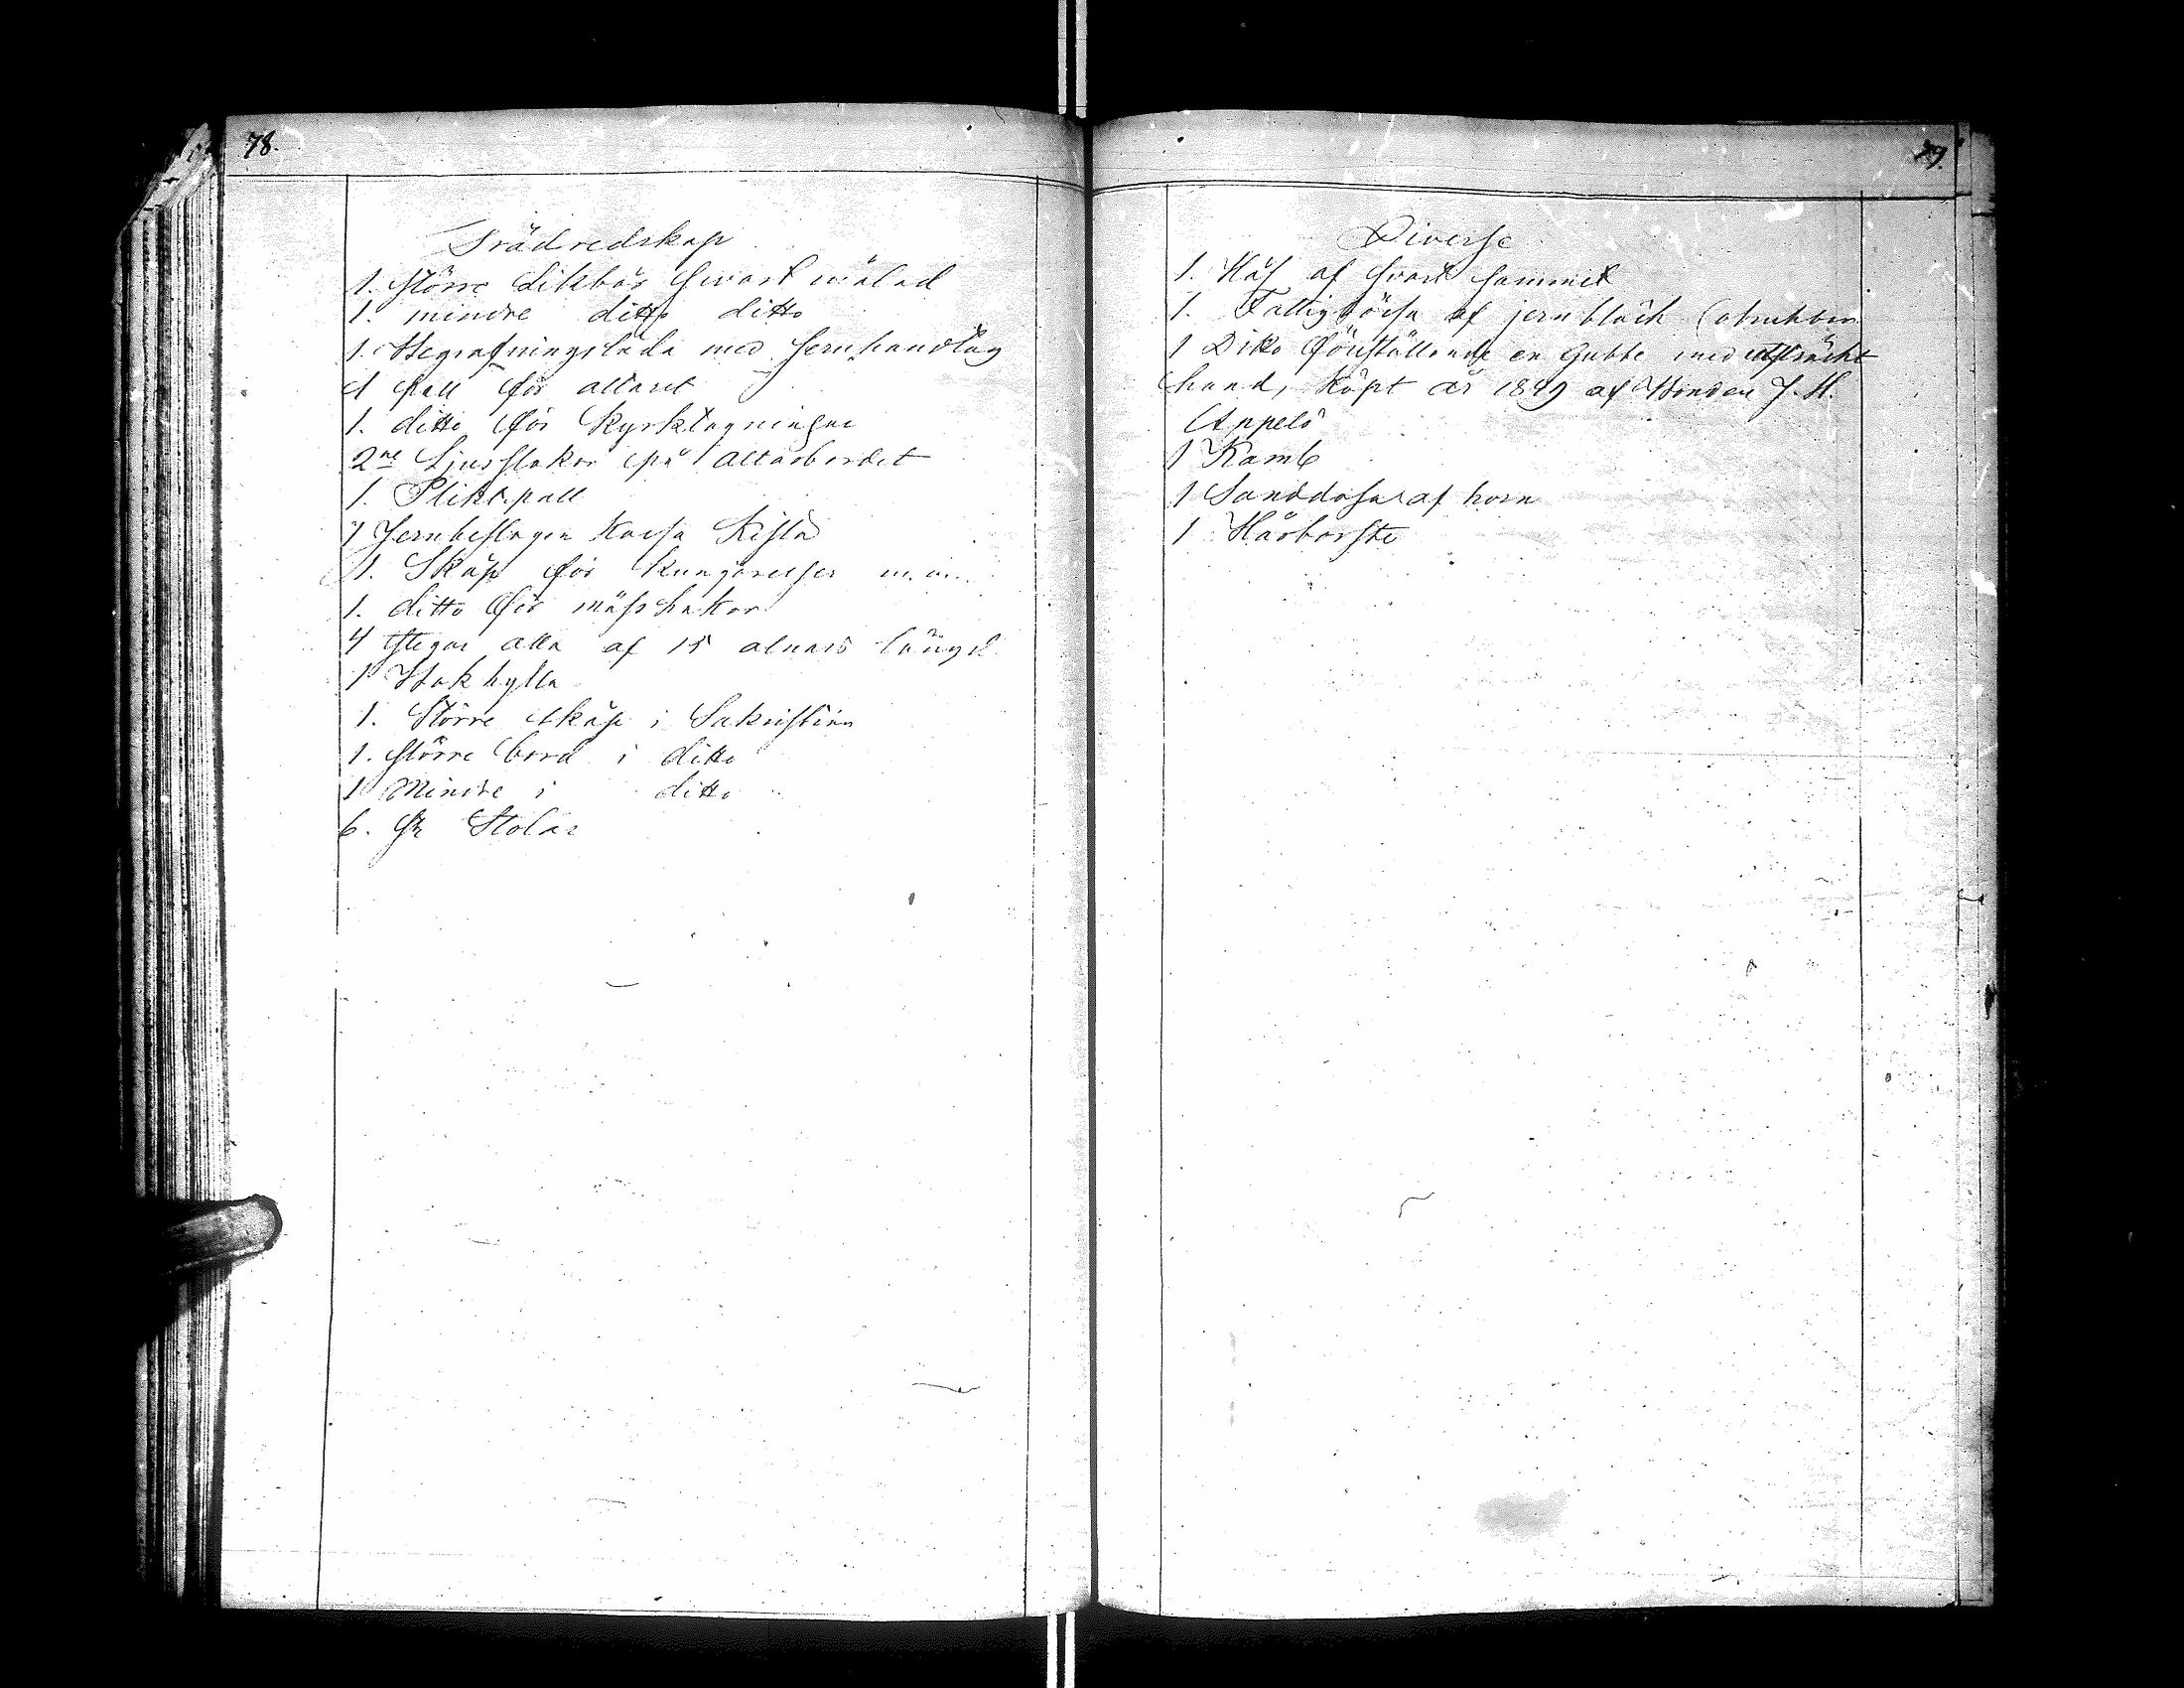 78.
Trädredskap
1. större Likbår svart målad
1. mindre ditto ditto
1. Begrafningslåda med jernhandtag
1 Pall för altaret
1. ditto för Kyrktagningar
2ne Ljusstakar på altarbordet
1. Pliktpall
1 Jernbeslagen Kassa Kista
1. Skåp för Kungörelser m.m.
1. ditto för mässhakar
4 Stegar alla af 15 alnars längd
1 Bokhylla
1. Större skåp i Sakristian
1. större bord i ditto
1 Mindre i ditto
6. st Stolar
79.
Diverse
1. Håf af svart sammet
1. Fattigbössa af jernbläck (obrukbar
1 Dito föreställande en Gubbe med utsträckt
hand, köpt år 1849 af Bonden J. H.
Appelö
1 Kamb
1 Sanddosa af horn
1 Hårborste